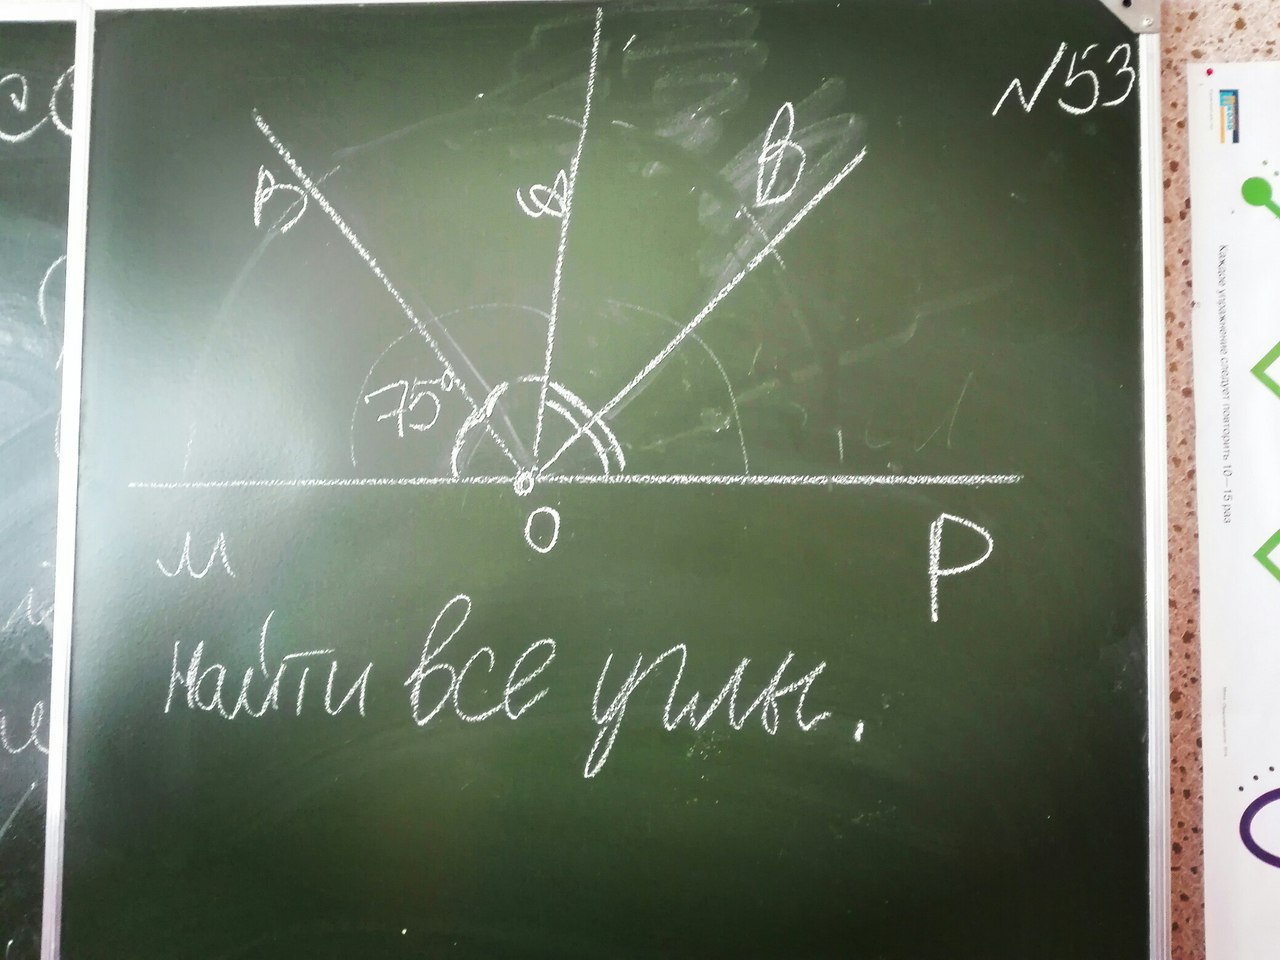 N53
D
Q
B
75°
O
M
P
Найти все углы.
Каждое упражнение следует повторить 10–15 раз